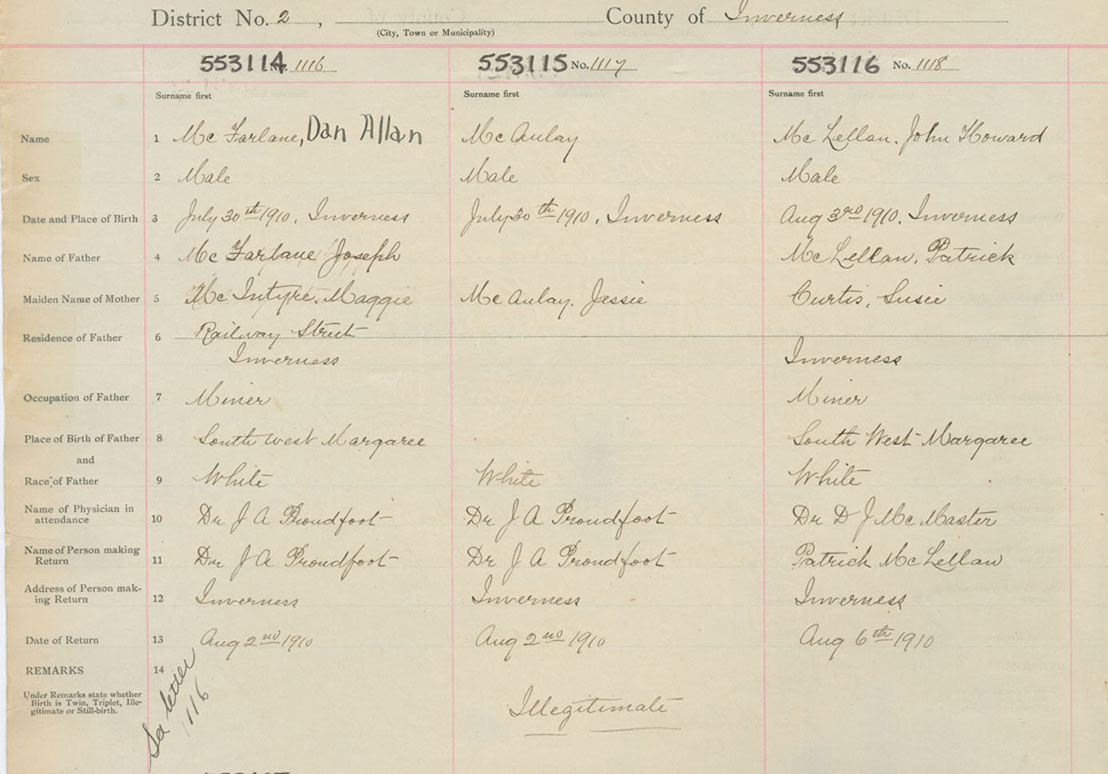 District No. 2 , County of Inverness
(City, Town or Municipality)
553114 1116 553115 No. 1117 553116 No. 1118
Surname first Surname first Surname first
Name 1 Mc Farlane, Dan Allan Mc Aulay Mc Lellan. John Howard
Sex 2 Male Male Male
Date and Place of Birth 3 July 30th 1910. Inverness July 30th 1910. Inverness Aug 3rd 1910. Inverness
Name of Father 4 Mc Farlane Joseph Mc Lellan. Patrick
Maiden Name of Mother 5 Mc Intyre. Maggie Mc Aulay. Jassie Curtis, Susie
Residence of Father 6 Railway Street
Inverness Inverness
Occupation of Father 7 Miner Miner
Place of Birth of Father 8 South West Margaree South West Margaree
and
Race of Father 9 White White White
Name of Physician in
attendance 10 Dr J A Proudfoot Dr J A Proudfoot Dr D J Mc Master
Name of Person making
Return 11 Dr J A Proudfoot Dr J A Proudfoot Patrick Mc Lellan
Address of Person mak-
ing Return 12 Inverness Inverness Inverness
Date of Return 13 Aug 2nd 1910 Aug 2nd 1910 Aug 6th 1910
REMARKS 14
Under Remarks state whether
Birth is Twin, Triplet, Ille-
gitimate or Still-birth.
letter
1116
Illegitimate